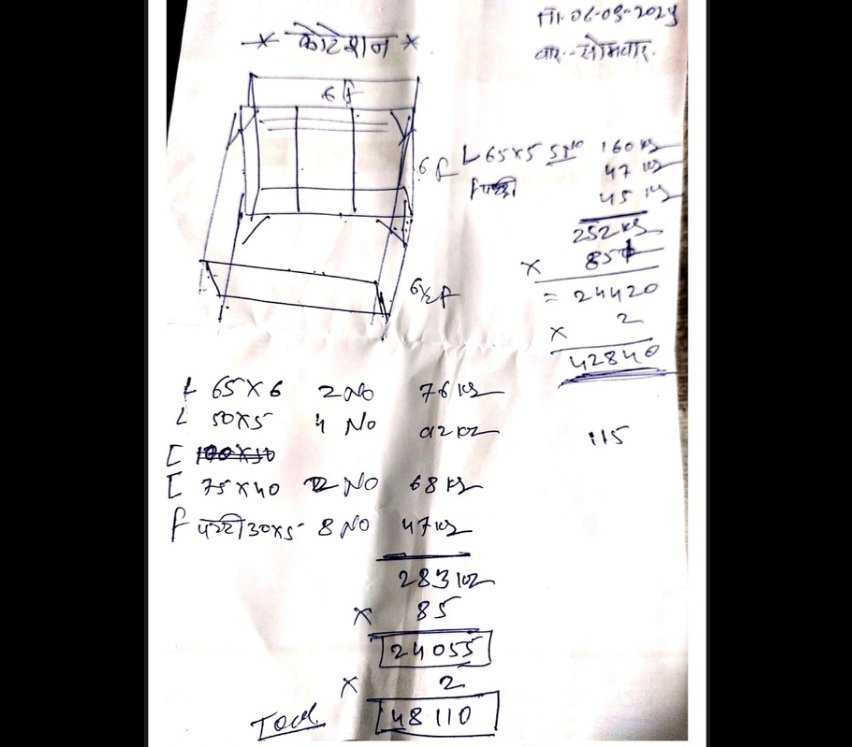 ता. 06-05-2024
वार.- सोमवार.
* कोटेशन *
6 f
6 f
6½ f
L 65x5 5No 160 kg
f पट्टी 47 kg
45 kg
252 kg
x 85
= 24420
x 2
42840
115
L 65 X 6 2 No 76 kg
L 50X5 4 No 92 kg
[ 100 x 50
[ 75 X 40 2 No 68 kg
f पट्टी 30x5 8 No 47 kg
283 kg
x 85
24055
x 2
Total 48110